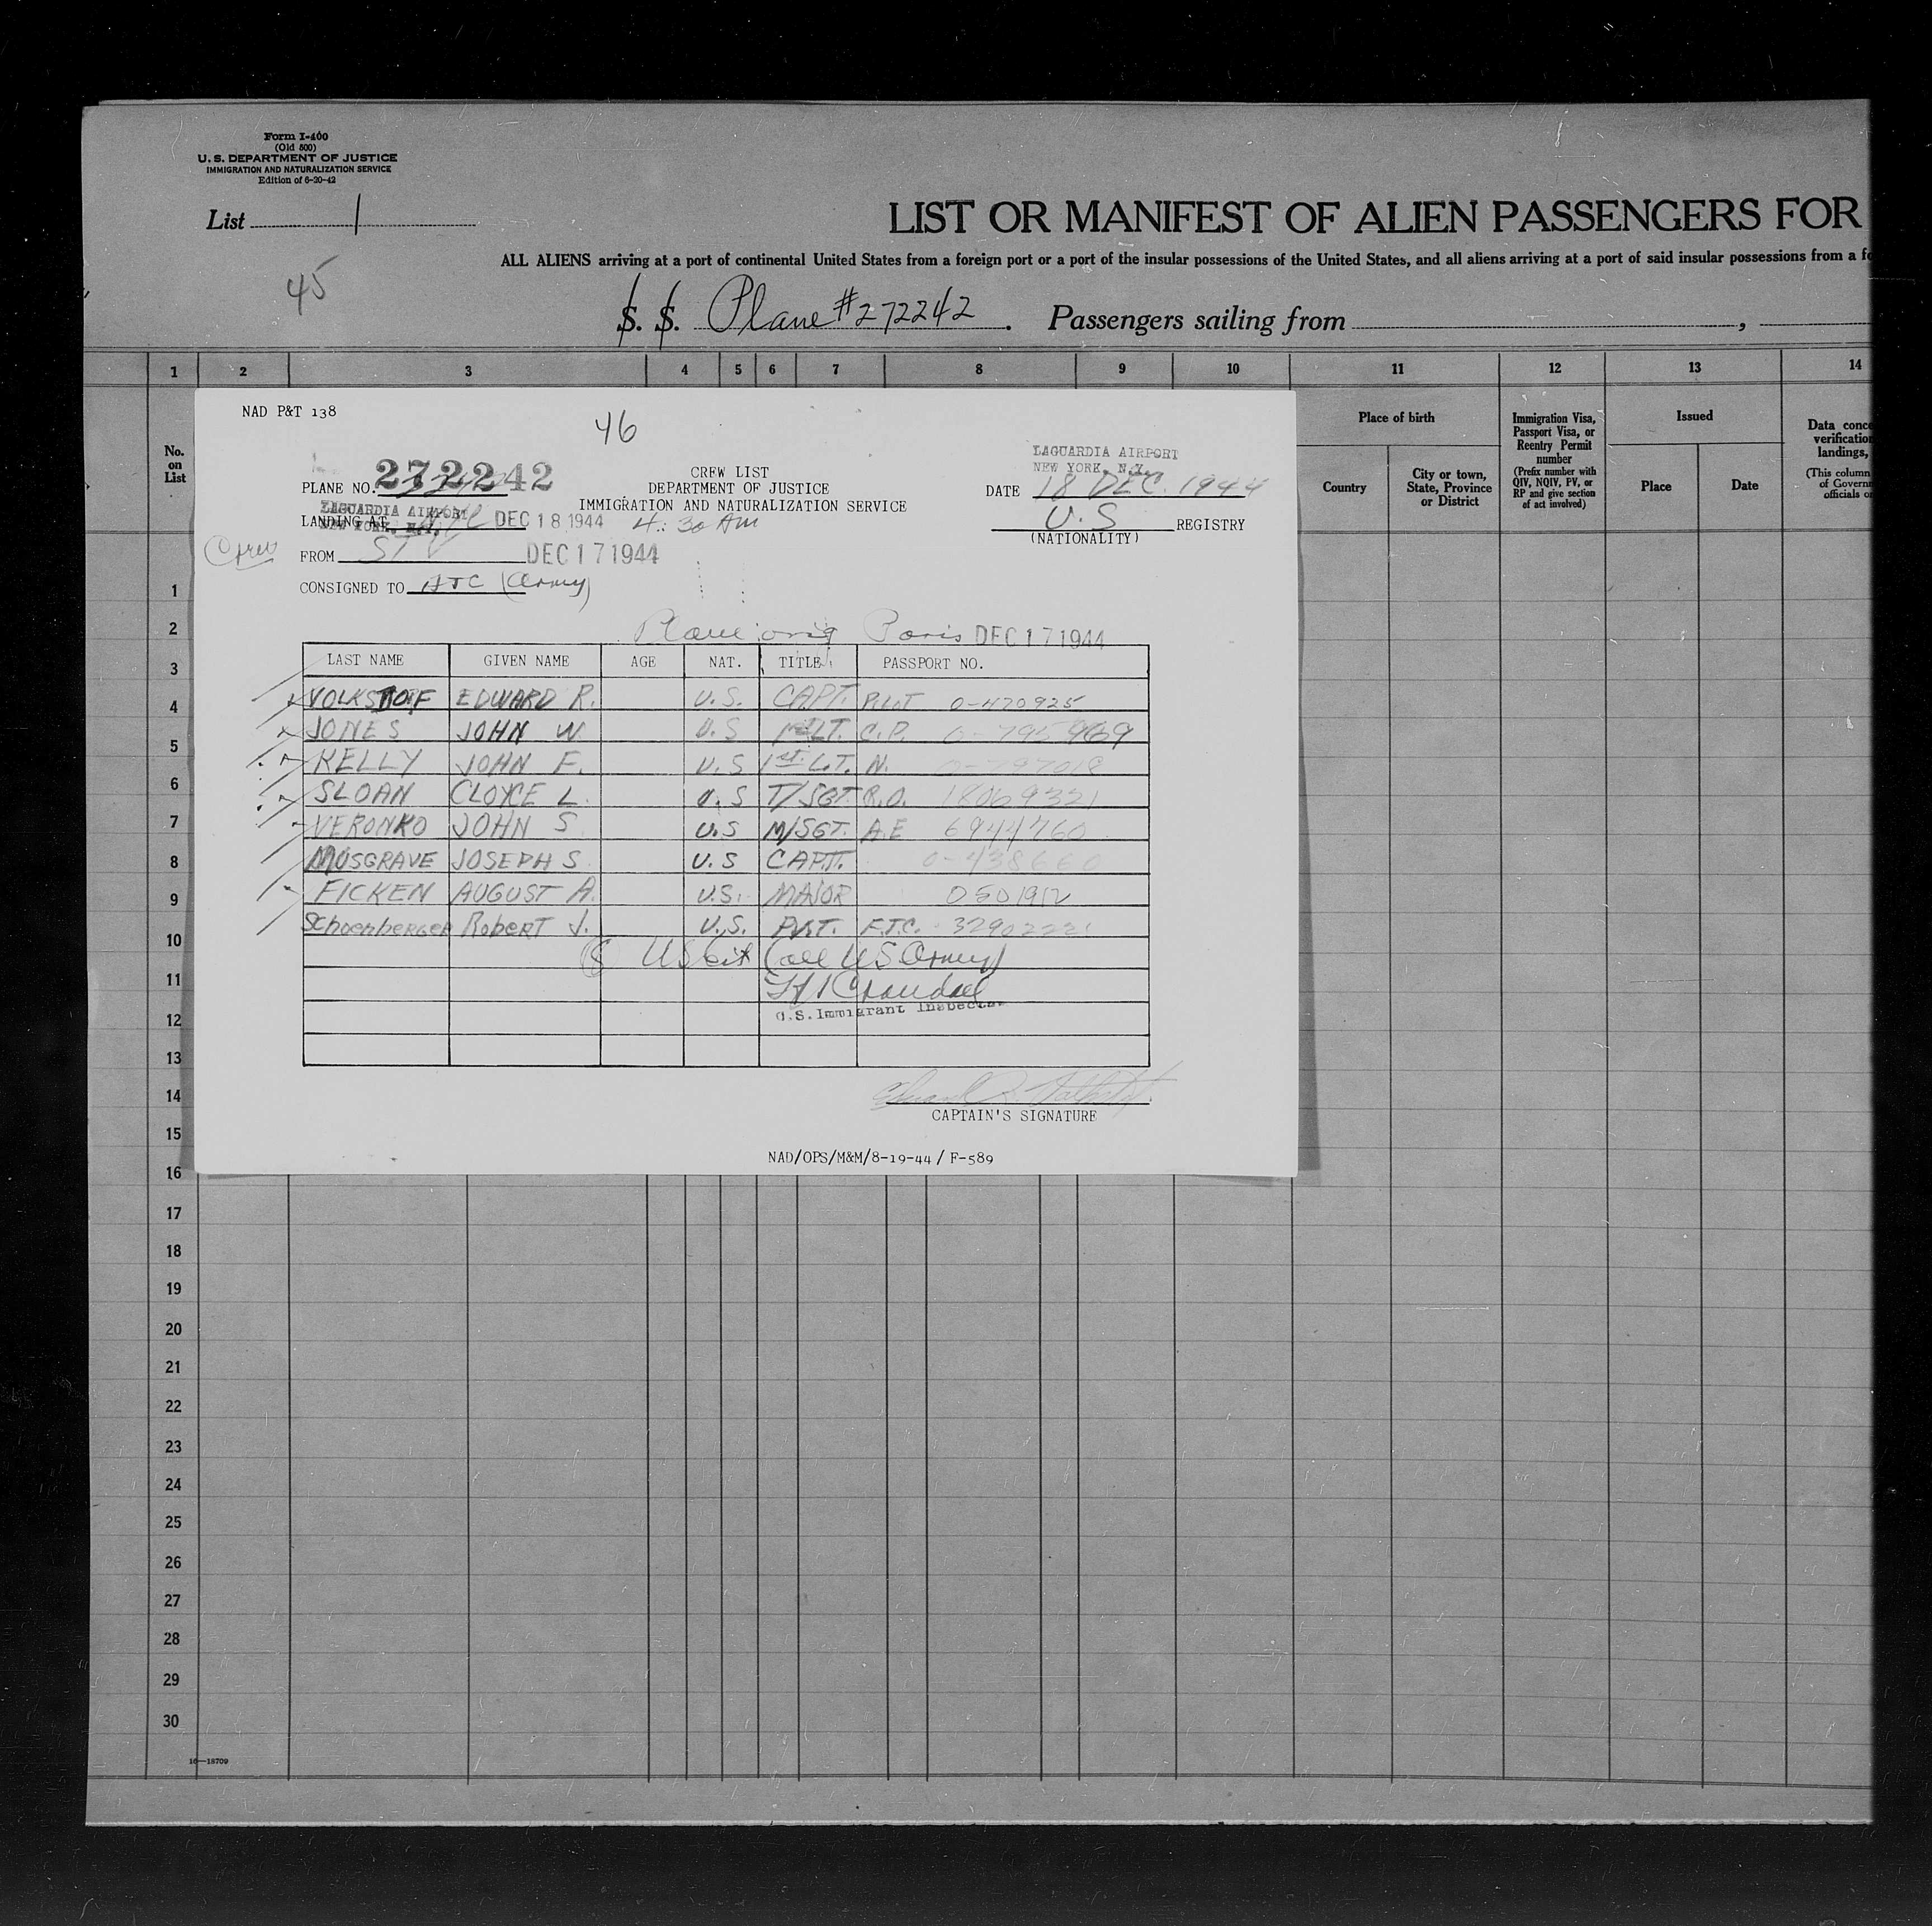 Form I-400
(Old 500)
U. S. DEPARTMENT OF JUSTICE
IMMIGRATION AND NATURALIZATION SERVICE
Edition of 6-20-42
List 1
45
LIST OR MANIFEST OF ALIEN PASSENGERS FOR
ALL ALIENS arriving at a port of continental United States from a foreign port or a port of the insular possessions of the United States, and all aliens arriving at a port of said insular possessions from a fo
S. S. Plane #272242. Passengers sailing from
1 2 3 4 5 6 7 8 9 10 11 12 13 14
No. on List
Place of birth
Country
City or town, State, Province or District
Immigration Visa, Passport Visa, or Reentry Permit number
(Prefix number with QIV, NQIV, PV, or RP and give section of act involved)
Issued
Place
Date
Data conce
verification
landings,
(This column
of Governm
officials o
NAD P&T 138
46
PLANE NO. 272242
CREW LIST
DEPARTMENT OF JUSTICE
IMMIGRATION AND NATURALIZATION SERVICE
LAGUARDIA AIRPORT
NEW YORK, N.Y.
DATE 18 DEC. 1944
LAGUARDIA AIRPORT
NEW YORK, N.Y.
LANDING AT DEC 18 1944 4:30 AM
U.S REGISTRY
(NATIONALITY)
FROM DEC 17 1944
CONSIGNED TO ATC (Army)
Plane orig Paris DEC 17 1944
LAST NAME GIVEN NAME AGE NAT. TITLE PASSPORT NO.
VOLKSTOF EDWARD R. U.S. CAPT. PILOT 0-470925
JONES JOHN W. U.S LT. C.P. 969
KELLY JOHN F. U.S 1st L.T. N. 0-797018
SLOAN CLOYCE L. U.S T/SGT R.O. 18069321
VERONKO JOHN S U.S M/SGT. A.E 6944760
MUSGRAVE JOSEPH S. U.S CAPT. 0-438660
FICKEN AUGUST A. U.S. MAJOR 0501912
Schoenberger Robert J. U.S. PVT. F.T.C. 32902221
(8 US Cit (all US Army)
Crandall
U.S. Immigrant Inspector
CAPTAIN'S SIGNATURE
NAD/OPS/M&M/8-19-44 / F-589
1
2
3
4
5
6
7
8
9
10
11
12
13
14
15
16
17
18
19
20
21
22
23
24
25
26
27
28
29
30
16—18709